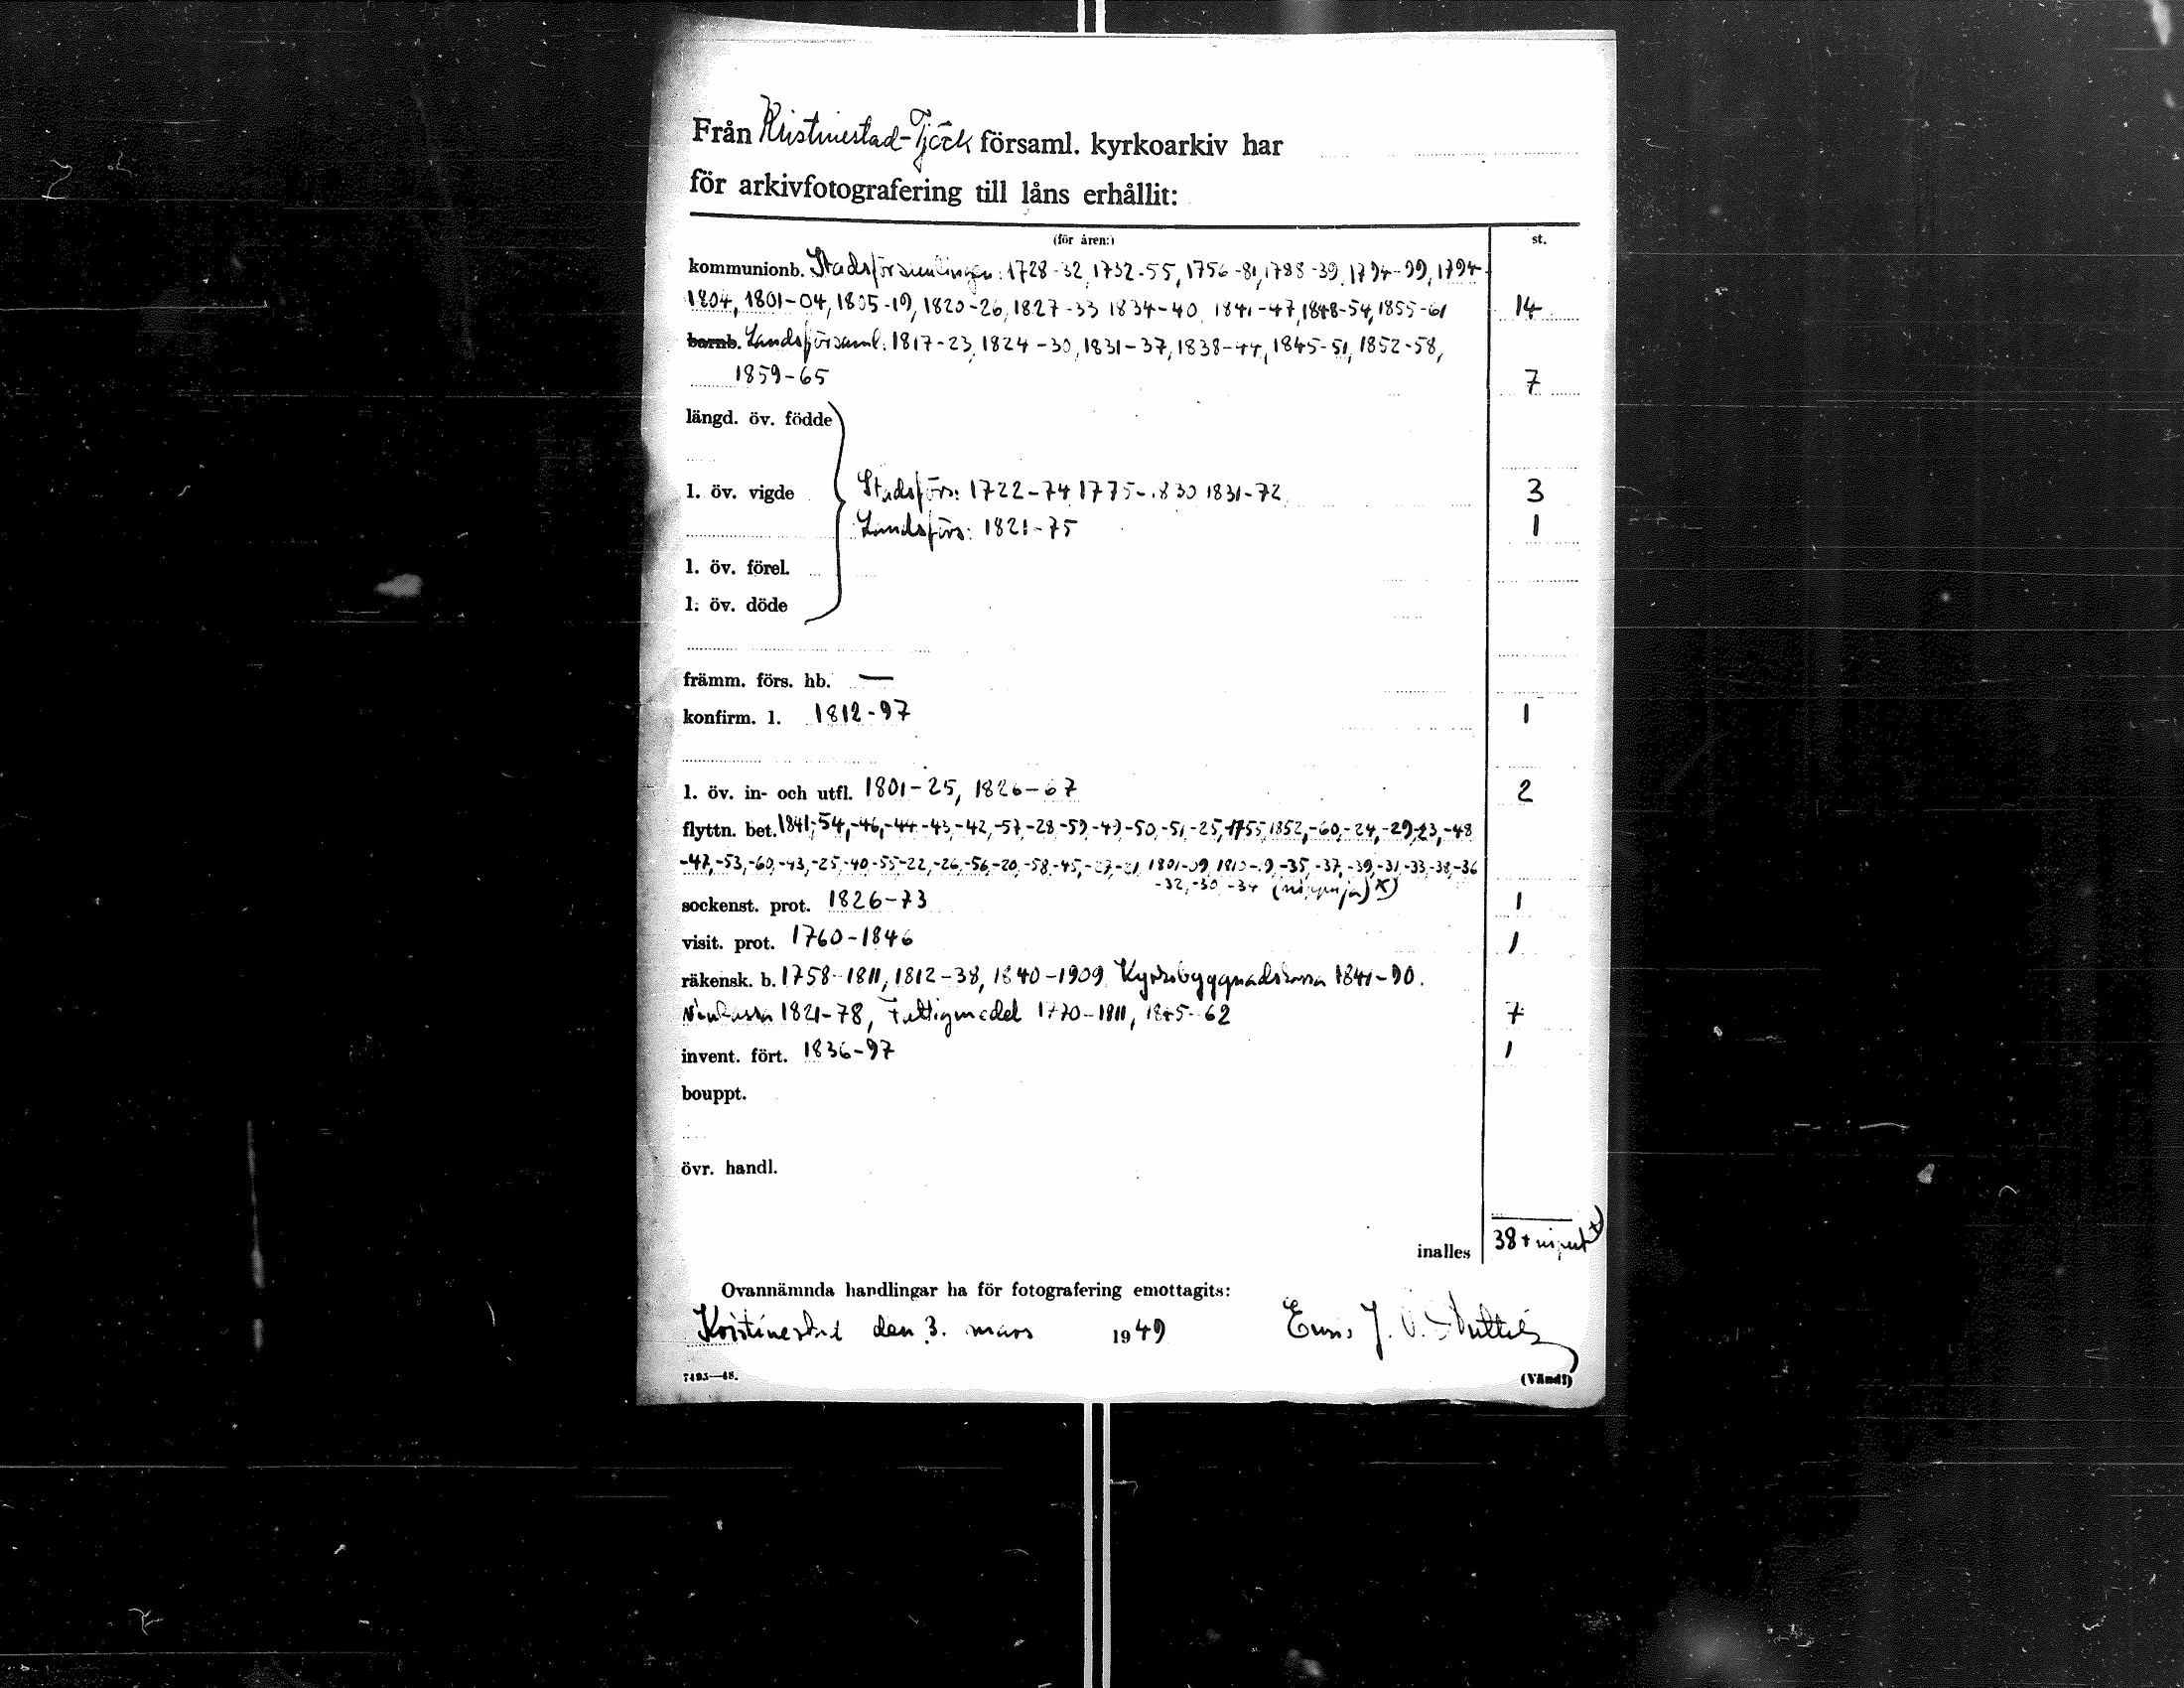 Från Kristinestad-Tjöck församl. kyrkoarkiv har
för arkivfotografering till låns erhållit:
(för åren:) st.
kommunionb. Stadsförsamlingen: 1728-32, 1732-55, 1756-81, 1788-39, 1794-99, 1794-
1804, 1801-04, 1805-19, 1820-26, 1827-33 1834-40, 1841-47, 1848-54, 1855-61 14
barnb. Landsförsaml: 1817-23, 1824-30, 1831-37, 1838-44, 1845-51, 1852-58,
1859-65 7
längd. öv. födde
l. öv. vigde Stadsförs: 1722-74 1775-1830 1831-72 3
Landsförs: 1821-75 1
l. öv. förel.
l. öv. döde
främm. förs. hb. —
konfirm. l. 1812-97 1
l. öv. in- och utfl. 1801-25, 1826-67 2
flyttn. bet. 1841, -54, -46, -44 -43, -42, -57, -28, -59, -49 -50, -51, -25, 1755, 1852, -60, -24, -29, -23, -48
-47, -53, -60, -43, -25, -40 -55 -22, -26, -56, -20, -58, -45, -27, -21, 1801-09, 1810-19, -35, -37, -39, -31, -33, -38, -36
-32, -30, -34 x)
sockenst. prot. 1826-73 1
visit. prot. 1760-1846 1
räkensk. b. 1758-1811, 1812-38, 1840-1909, Kyrkobyggnadskassa 1841-90.
1821-78, Fattigmedel 1770-1811, 1845-62 7
invent. fört. 1836-97 1
bouppt.
övr. handl.
inalles 38 + x)
Ovannämnda handlingar ha för fotografering emottagits:
Kristinestad den 3. mars 1949 J.
7493—48. (Vänd!)